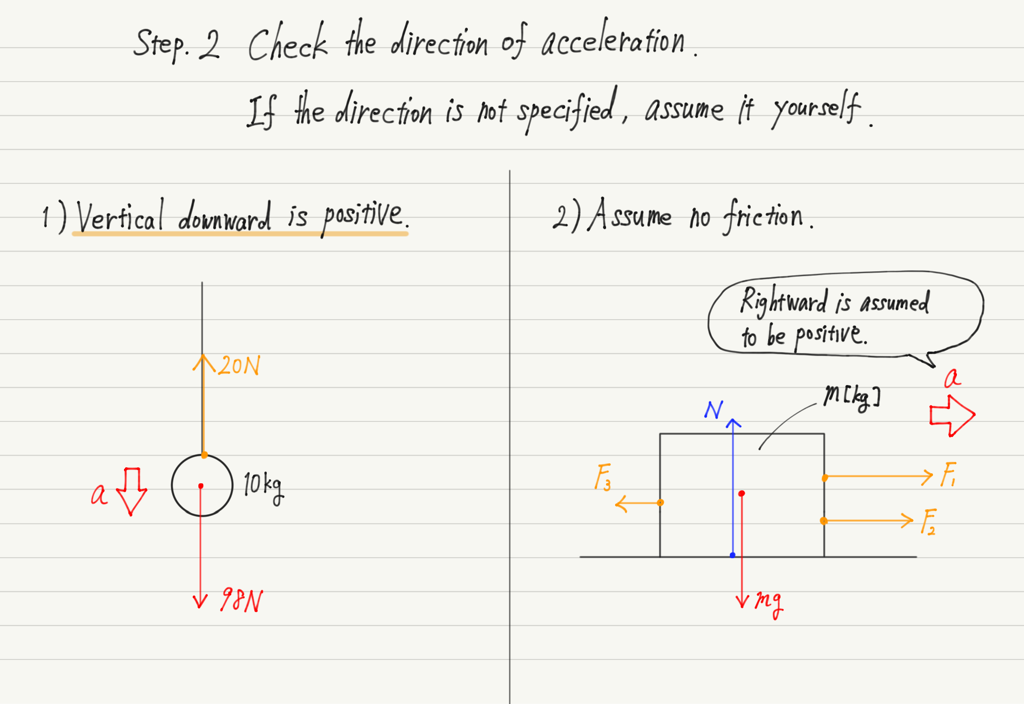 Step. 2 Check the direction of acceleration.
If the direction is not specified, assume it yourself.
1) Vertical downward is positive.
20N
a
10kg
98N
2) Assume no friction.
Rightward is assumed
to be positive.
a
m[kg]
N
F₃
F₁
F₂
mg